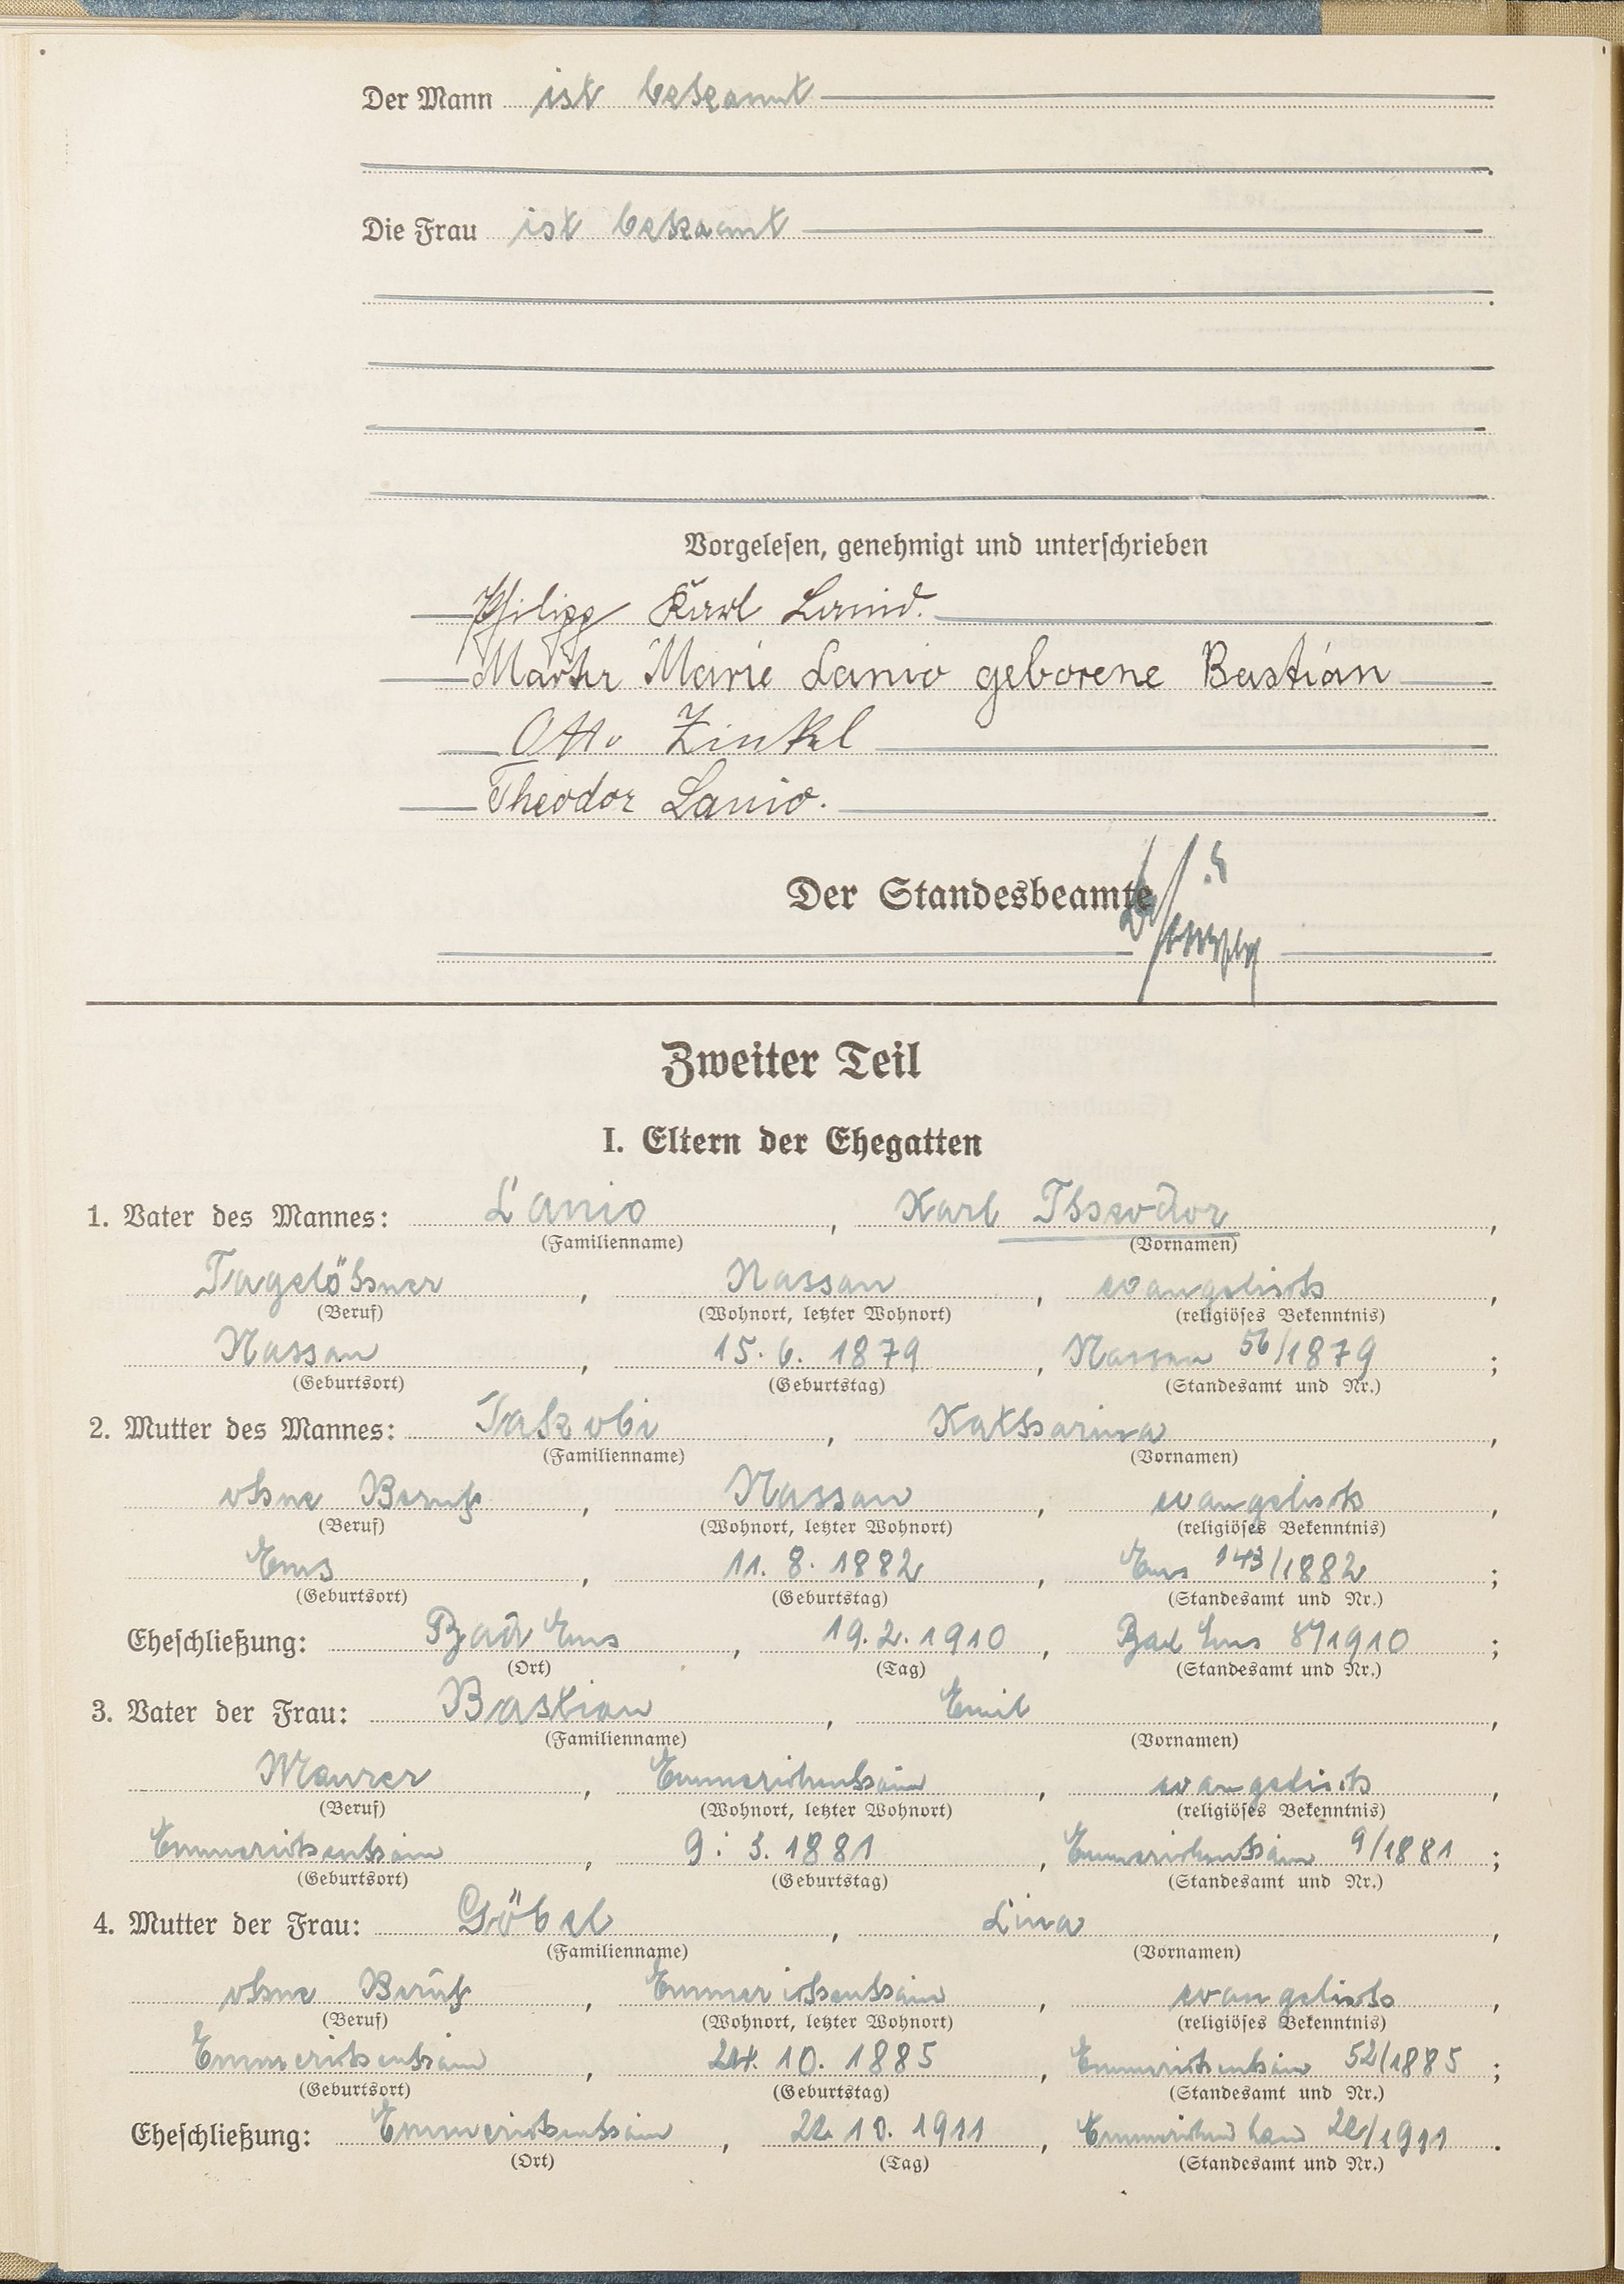 Der Mann ist bekannt
Die Frau ist bekannt
Vorgelesen, genehmigt und unterschrieben
Philipp Karl Lanio.
Martha Marie Lanio geborene Bastian
Otto Zinkel
Theodor Lanio.
Der Standesbeamte
Zweiter Teil
I. Eltern der Ehegatten
1. Vater des Mannes: Lanio, Karl Theodor,
(Familienname) (Vornamen)
Tagelöhner, Nassau, evangelisch,
(Beruf) (Wohnort, letzter Wohnort) (religiöses Bekenntnis)
Nassau, 15. 6. 1879, Nassau 56/1879;
(Geburtsort) (Geburtstag) (Standesamt und Nr.)
2. Mutter des Mannes: Jakobi, Katharina,
(Familienname) (Vornamen)
ohne Beruf, Nassau, evangelisch,
(Beruf) (Wohnort, letzter Wohnort) (religiöses Bekenntnis)
Ems, 11. 8. 1882, Ems 143/1882;
(Geburtsort) (Geburtstag) (Standesamt und Nr.)
Eheschließung: Bad Ems, 19. 2. 1910, Bad Ems 8/1910;
(Ort) (Tag) (Standesamt und Nr.)
3. Vater der Frau: Bastian, Emil,
(Familienname) (Vornamen)
Maurer, Emmerichenhain, evangelisch,
(Beruf) (Wohnort, letzter Wohnort) (religiöses Bekenntnis)
Emmerichenhain, 9. 3. 1881, Emmerichenhain 9/1881;
(Geburtsort) (Geburtstag) (Standesamt und Nr.)
4. Mutter der Frau: Göbel, Lina,
(Familienname) (Vornamen)
ohne Beruf, Emmerichenhain, evangelisch,
(Beruf) (Wohnort, letzter Wohnort) (religiöses Bekenntnis)
Emmerichenhain, 24. 10. 1885, Emmerichenhain 52/1885;
(Geburtsort) (Geburtstag) (Standesamt und Nr.)
Eheschließung: Emmerichenhain, 22. 10. 1911, Emmerichenhain /1911.
(Ort) (Tag) (Standesamt und Nr.)